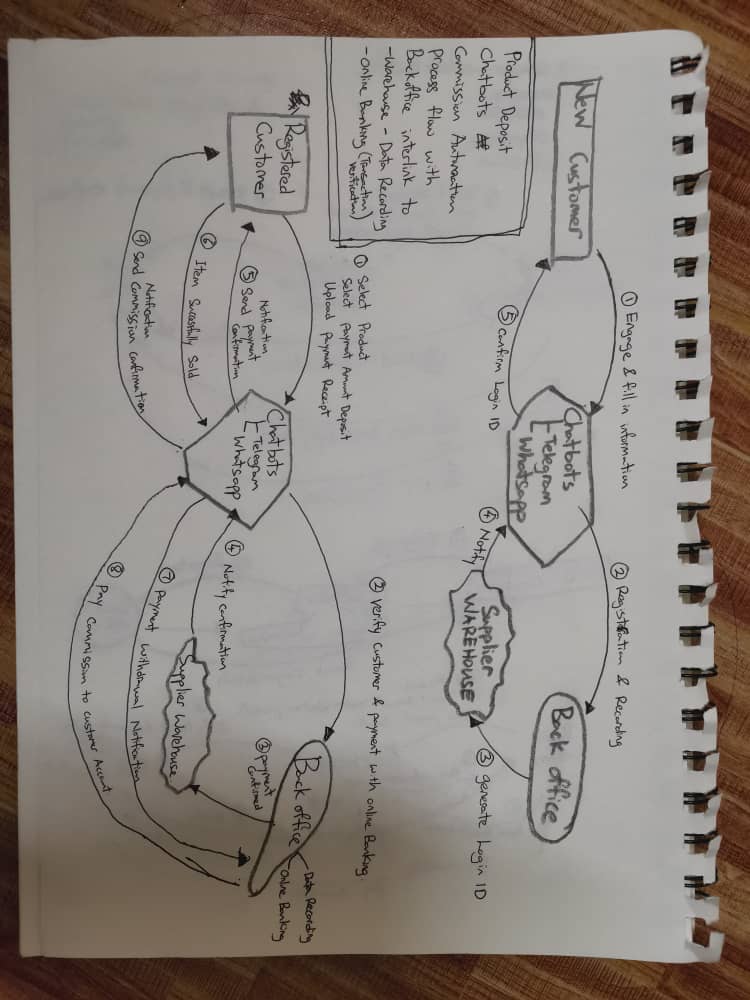 New Customer
① Engage & fill in information
Chatbots
Telegram
Whatsapp
② Registration & Recording
Back office
③ generate Login ID
Supplier
WAREHOUSE
④ Notify
⑤ Confirm Login ID
Product Deposit
Chatbots
Commission Automation
process flow with
Backoffice interlink to
- Warehouse - Data Recording
- Online Banking (Transaction
Verification)
Registered
Customer
① Select Product
Select Payment Amount Deposit
Upload Payment Receipt
Chatbots
Telegram
Whatsapp
② Verify Customer & payment with online Banking.
Back office
Data Recording
Online Banking
③ payment
Confirmed
Supplier Warehouse
④ Notify Confirmation
Notification
⑤ Send payment
Confirmation
⑥ Item Successfully Sold
⑦ Payment Withdrawal Notification
⑧ Pay Commission to customer Account
Notification
⑨ Send Commission Confirmation